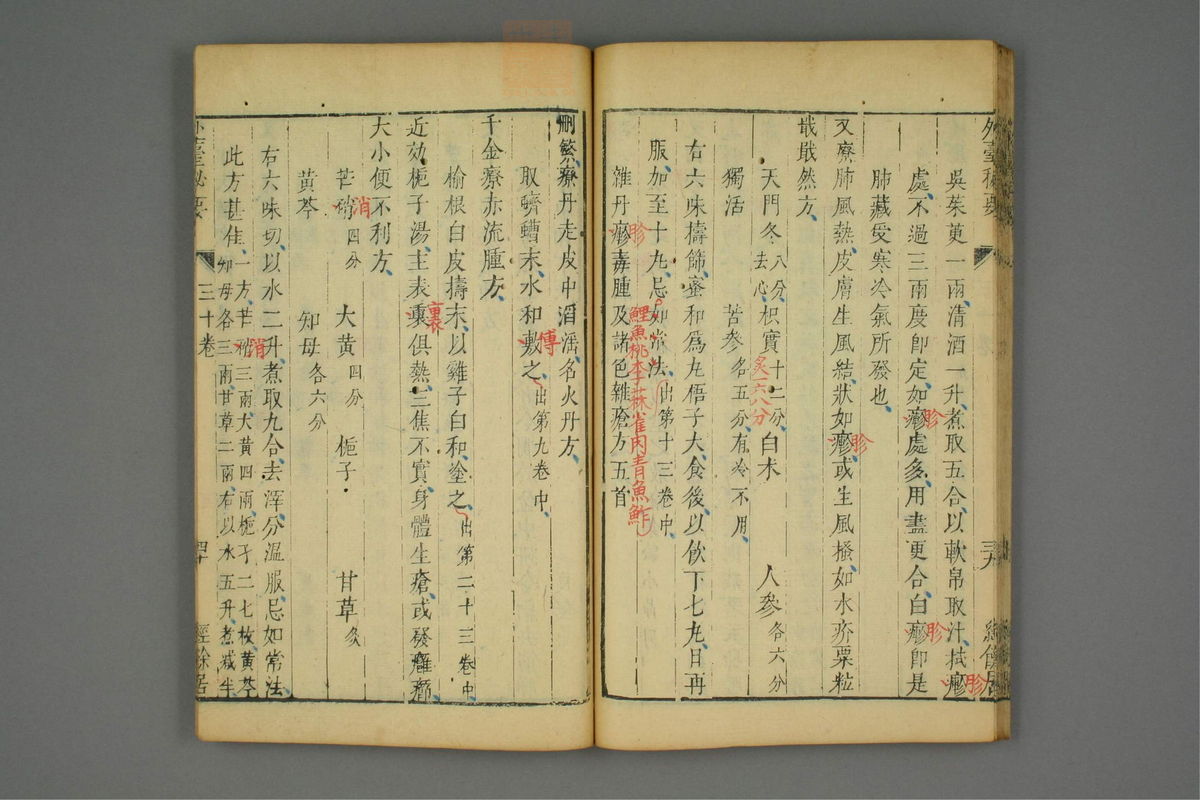 外臺秘要
三九
經餘居
吳茱萸一兩清酒一升煮取五合以軟帛取汁拭㿀
胗
處不過三兩度即定如㿀處多用盡更合白㿀即是
胗
胗
肺藏受寒冷氣所發也
又療肺風熱皮膚生風結狀如㿀或生風搔如水疥粟粒
胗
戢戢然方
天門冬八分去心 枳實十二分 白朮 人參各六分
炙六八分
獨活 苦參各五分有冷不用
右六味擣篩蜜和為丸梧子大食後以飲下七丸日再
服加至十丸忌如常法出第十三卷中
鯉魚桃李蒜雀肉青魚鮓
雜丹㿀毒腫及諸色雜瘡方五首
胗
刪繁療丹走皮中滔滔名火丹方
取蠐螬末水和敷之出第九卷中
傅
千金療赤流腫方
榆根白皮擣末以雞子白和塗之出第二十三卷中
近効梔子湯主表裏俱熱三焦不實身體生瘡或發癰癤
裏
大小便不利方
芒硝四分 大黃四分 梔子 甘草炙
消
黃芩 知母各六分
右六味切以水二升煮取九合去滓分溫服忌如常法
此方甚佳一方芒硝三兩大黃四兩梔子二七枚黃芩
知母各三兩甘草二兩右以水五升煮減半
消
外臺秘要
三十卷
四十
經餘居